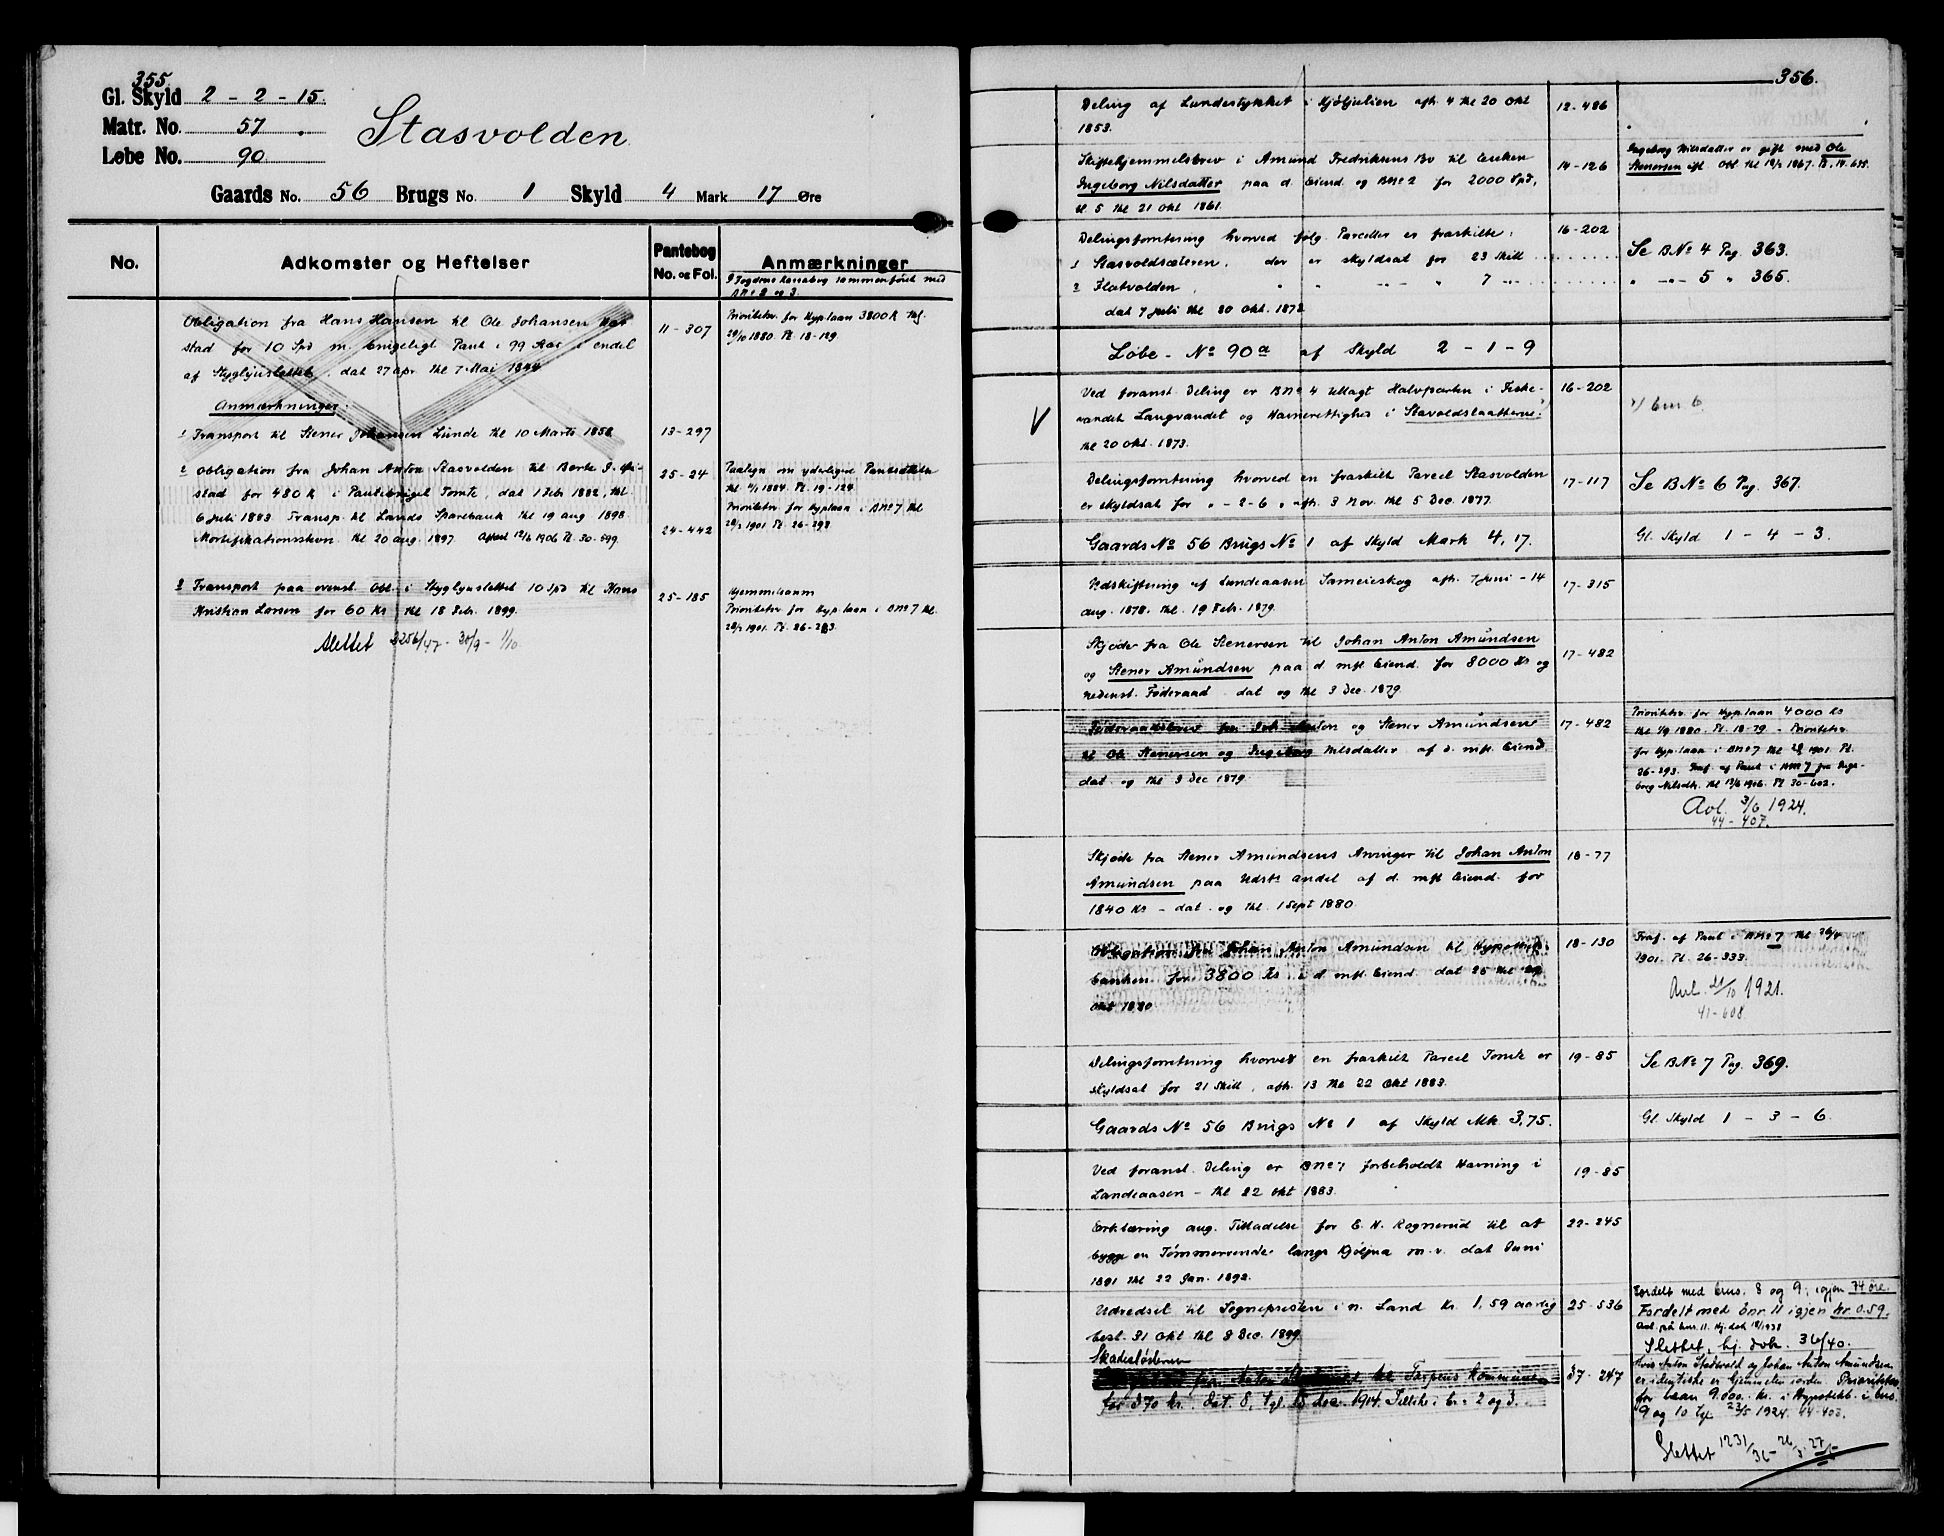 355.
Gl. Skyld 2 - 2 - 15.
Matr. No. 57.
Løbe No. 90.
Stasvolden
Gaards No. 56 Brugs No. 1 Skyld 4 Mark 17 Øre
No. Adkomster og Heftelser Pantebog No. og Fol. Anmærkninger
Obligation fra Hans Hansen til Ole Johansen
stad for 10 Spd m. brugeligt Pant i 99 Aar i endel
af Styglyuslettet, dat 27 apr. thl 7 Mai 1844
11 - 307
Prioritetsv. for Hyplaan 3800 K thl.
29/10 1880. Pt. 18-129.
Anmærkninger.
1 Transport til Stener Johansen Lunde thl 10 Marts 1858
13-297
2 Obligation fra Johan Anton Stasvolden til Borte
stad for 480 K i Pantebrevet Tomte, dat 1 Feb 1882, thl.
6 Juli 1883 Transp. til Lands Sparebank thl 19 aug 1898
Mortifikationsskem. thl 20 aug. 1897 Aflæst 12/6 1906 Pt. 30-599.
25-24
24-442
om yderligere
thl 1884. Pt. 19-124
Prioritetsv. for Hyplaan i BNo 7 thl
28/2 1901 Pt. 26-293
3 Transport paa ovenst. Obl. i Styglyuslettet 10 Spd til Hans
Kristian Larsen for 60 Kr. thl 18 Feb. 1899.
25-185
Hjemmelsanm
Prioritetsv for Hyplaan i BNo 7 thl.
28/2 1901. Pt. 26-293.
Slettet 2256/47 - 30/9 - 1/10.
356.
Deling af Lundestykket i Kjöljulien afh. 4 thl 20 Okt
1853.
12-486
Skiftehjemmelsbrev i Amund Fredriksens Bo til Enken
Ingeborg Nilsdatter paa d. Eiend. og BNo 2 for 2000 Spd,
d. 5 thl 21 Okt 1861.
14-126
Ingeborg Nilsdatter er gift med Ole
Stenersen efl. Obl. thl 1867. Pt. 14-695.
Delingsforretning hvorved følg. Parceller er fraskilte:
1 Stasvoldsæteren, der er skyldsat for 23 Skill
2 Flatvolden, " " -"- " 7 -"-
dat 7 Juli thl 20 Okt. 1873
16-202
Se BNo 4 Pag. 363.
" -"- 5 " 365.
Løbe - No 90a af Skyld 2 - 1 - 9
Ved foranst. Deling er BNo 4 tillagt Halvparten i Fiske-
vandet Langvandet og Havnerettighed i Stavoldslaatterne.
thl 20 Okt. 1873.
16-202
Delingsforretning hvorved en fraskilt Parcel Stasvolden
er skyldsat for " - 2 - 6 " afh. 3 Nov. thl 5 Dec. 1877.
17-117
Se BNo 6 Pag. 367.
Gaards No 56 Brugs No 1 af Skyld Mark 4,17.
Gl. Skyld 1 - 4 - 3.
Udskiftning af Landeaasen Sameieskog afh. 7 Juni - 14
aug. 1878. thl. 19 Feb. 1879.
17-315
Skjøde fra Ole Stenersen til Johan Anton Amundsen
og Stener Amundsen paa d. mft. Eiend. for 8000 Kr og
nedenst. Føderaad dat og thl 3 Dec. 1879.
17-482
Føderaadsbrev fra Joh. Anton og Stener Amundsen
til Ole Stenersen og Ingeborg Nilsdatter af d. mft. Eiend.
dat. og thl 3 Dec 1879.
17-482
Prioritetsv. for Hyplaan 4000 Kr
thl 1/9 1880. Pt. 18-79 - Prioritetsv.
for Hyplaan i BNo 7 thl 1901. Pt.
26-293. Fraf. af Pant i BNo 7 fra Inge-
borg Nilsdtr. thl 12/6 1906. Pt 30-602.
Avl. 3/6 1924.
44-407.
Skjøde fra Stener Amundsens Arvinger til Johan Anton
Amundsen paa Udsts andel af d. mft Eiend. for
1840 Kr - dat. og thl. 1 Sept 1880.
18-77
Obligation fra Johan Anton Amundsen til Hypothek-
banken for 3800 Kr i d. mft. Eiend. dat 25 thl 29
Okt 1880
18-130
Fraf. af Pant i BNo 7 thl 26/4
1901. Pt. 26-333.
Avl. 21/10 1921.
41-608.
Delingsforretning hvorved en fraskilt Parcel Tomte er
skyldsat for 21 Skill, afh. 13 thl 22 Okt 1883.
19-85
Se BNo 7 Pag. 369.
Gaards No 56 Brugs No 1 af Skyld Mk. 3,75.
Gl Skyld 1 - 3 - 6.
Ved foranst. Deling er BNo 7 forbeholdt Havning i
Landeaasen - thl 22 Okt 1883.
19-85
Erklæring ang. Tilladelse for E. H. Rognerud til at
bygge en Tømmerrende langs Kjöljua m.v. dat Juni
1891 thl 22 Jan. 1892.
22-245
Udredsel til Sognepresten i n. Land Kr. 1,59 aarlig
best. 31 Okt thl 8 Dec. 1899.
25-536
Fordelt med bnr. 8 og 9, igjen 74 öre.
Fordelt med bnr 11 igjen kr 0.59.
Slettet, kj. dok. 36/40.
Skadesløsbrev
fra Anton til Torpens Kommune
for 370 kr. dat. 8, tgl. 15 des. 1904. Tillike i br. 2 og 3.
37-247
Hvis Anton Stasvold og Johan Anton Amundsen
er identiske er hjemmelen iorden. Prioritetsv.
for laan 9.000 kr. i Hypothekb. i bnr.
9 og 10 tgl. 23/5 1924. 44-403.
Slettet 1231/36 - 26/5 27/5